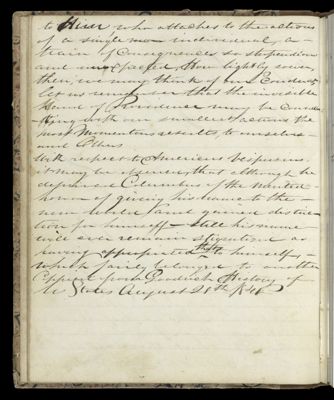 to Him who attaches to the actions
of a single man individual, a
train of consequences so stupendous
and unexpected. How lightly soever
then, we may think of our Conduct,
let us remember that the invisible
hand of Providence may be connec-
-ting with our smallest actions the
most Momentous results, to ourselves
and Others
With respect to Americus Vespucius
it may be observed, that although he
deprived Columbus of the merited
honor of giving his name to the
new world, and gained distinc-
tion for himself — still his name
will ever remain stigmatized as
having appropriated that to himself,
which fairly belonged to another
Copied from Goodrich History of
U States August 28th 1846